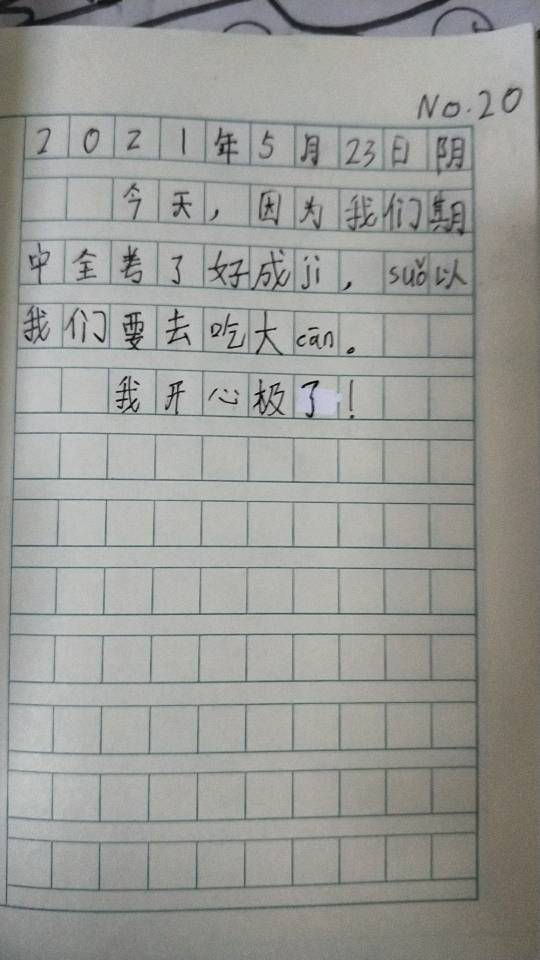 No.20
2021年5月23日 阴
今天，因为我们期
中全考了好成ji，suǒ以
我们要去吃大cān。
我开心极了！